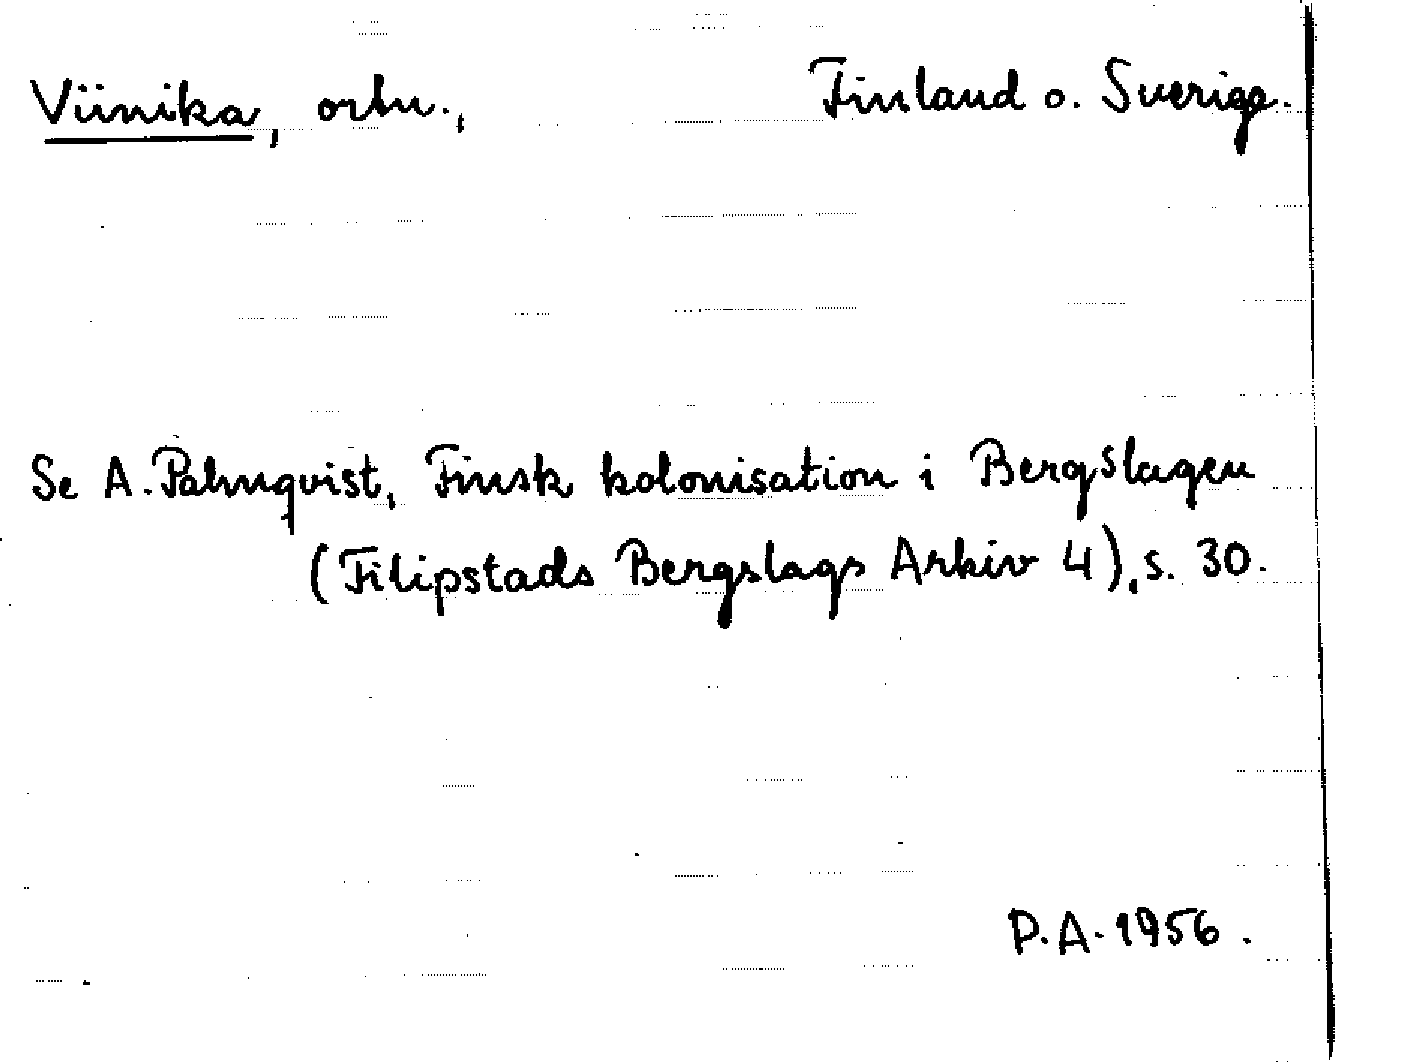 Viinika, ortn., Finland o. Sverige.
Se A. Palmqvist, Finsk kolonisation i Bergslagen
(Filipstads Bergslags Arkiv 4), s. 30.
P.A. 1956.